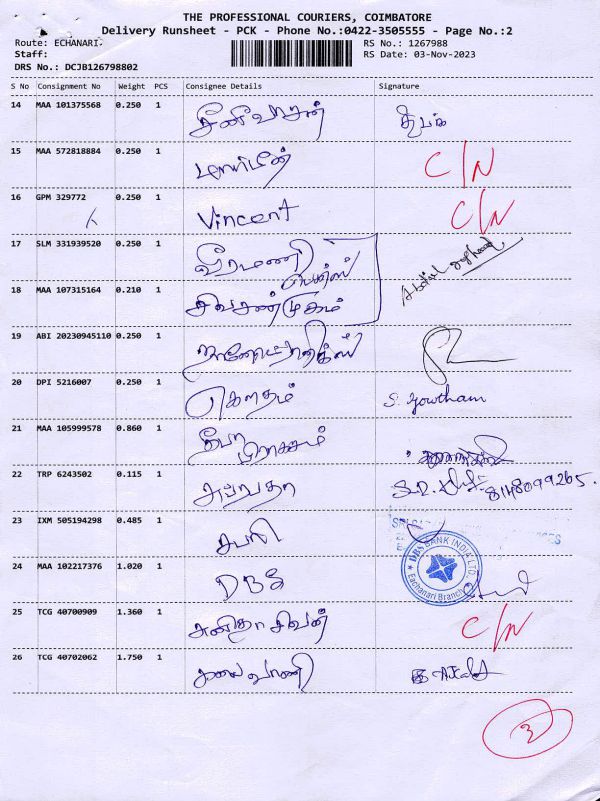 THE PROFESSIONAL COURIERS, COIMBATORE
Delivery Runsheet - PCK - Phone No.:0422-3505555 - Page No.:2
Route: ECHANARI. RS No.: 1267988
Staff: RS Date: 03-Nov-2023
DRS No.: DCJB126798802
S No Consignment No Weight PCS Consignee Details Signature
14 MAA 101375568 0.250 1 சீனிவாசன் தீபக்
15 MAA 572818884 0.250 1 C/N
16 GPM 329772 0.250 1 Vincent C/N
17 SLM 331939520 0.250 1 வீரமணி
18 MAA 107315164 0.210 1 சிவசண்முகம்
19 ABI 20230945110 0.250 1
20 DPI 5216007 0.250 1 கௌதம் S. Gowtham
21 MAA 105999578 0.860 1 தீபா பிரகாசம்
22 TRP 6243502 0.115 1 8148099265.
23 IXM 505194298 0.485 1 சபரி
24 MAA 102217376 1.020 1 DBS DBS BANK INDIA LTD. Eachanari Branch
25 TCG 40700909 1.360 1 C/N
26 TCG 40702062 1.750 1 கலைவாணி
3